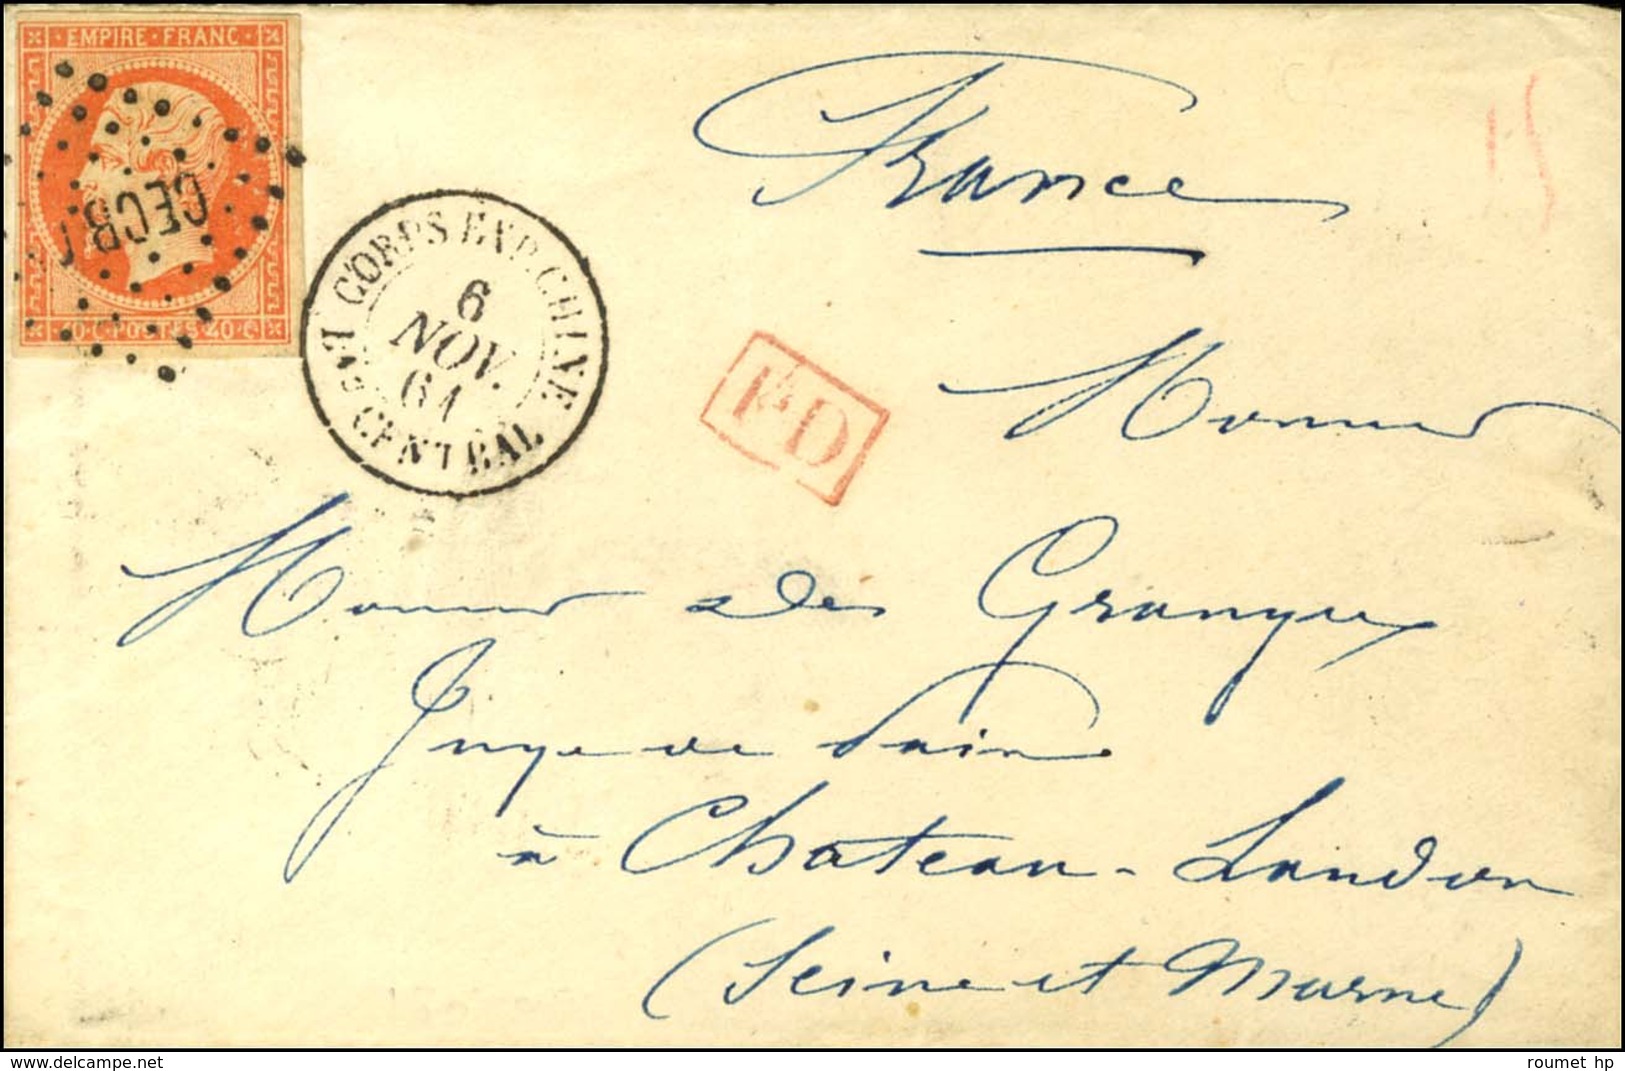 EMPIRE · FRANC ·
CECB
40 · C · POSTES · 40 · C
CORPS EXP. CHINE
6
NOV.
61
CENTRAL
France
PD
Monsieur
Monsieur des Granges
Juge de Paix
à Chateau-Landon
(Seine et Marne)
roumet hp